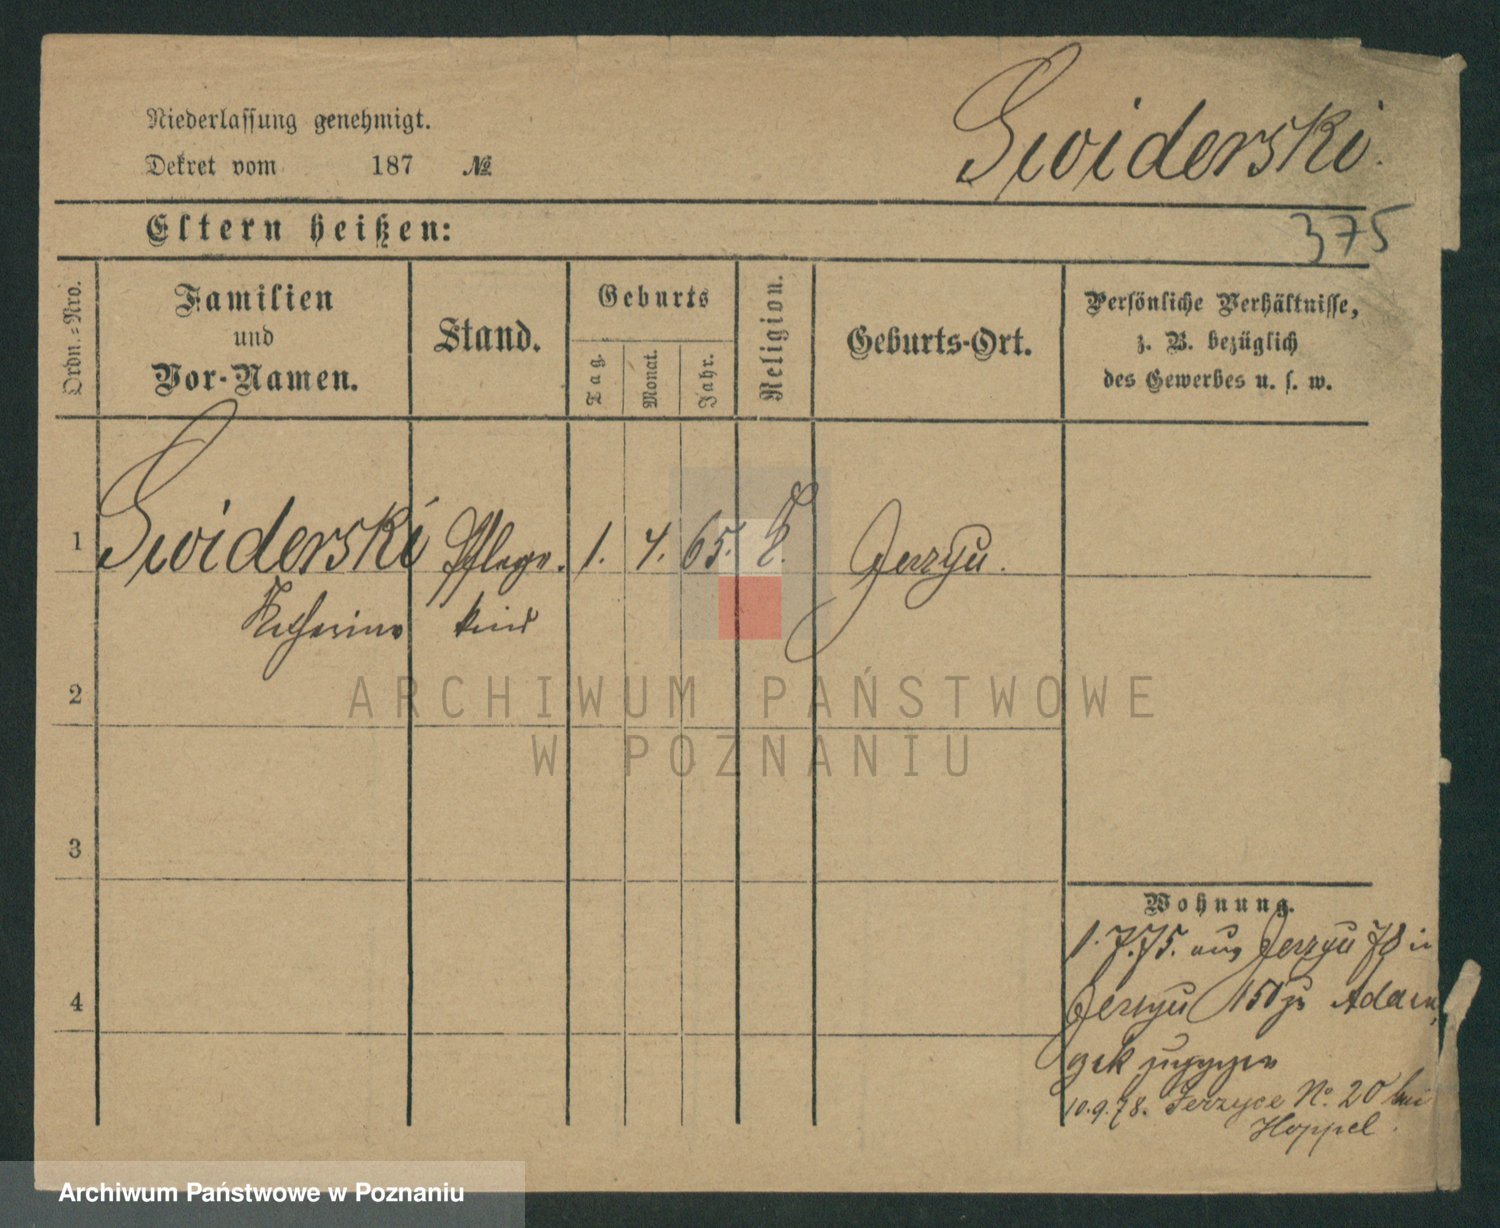 Niederlassung genehmigt.
Dekret vom 187 №
Swiderski.
Eltern heißen:
375
Ordn.=Nro.
Familien
und
Vor-Namen.
Stand.
Geburts
Tag.
Monat.
Jahr.
Religion.
Geburts-Ort.
Persönliche Verhältnisse,
z. B. bezüglich
des Gewerbes u. s. w.
1 Swiderski Pflege- 1. 4. 65. Jerzyce.
Katharina kind
2
3
4
Wohnung.
1.7.75. aus Jerzyce 78 in
Jerzyce 150 zu Adam
czak zugezogen
10.9.78. Jerzyce No. 20 bei
Hoppel.
ARCHIWUM PAŃSTWOWE
W POZNANIU
Archiwum Państwowe w Poznaniu